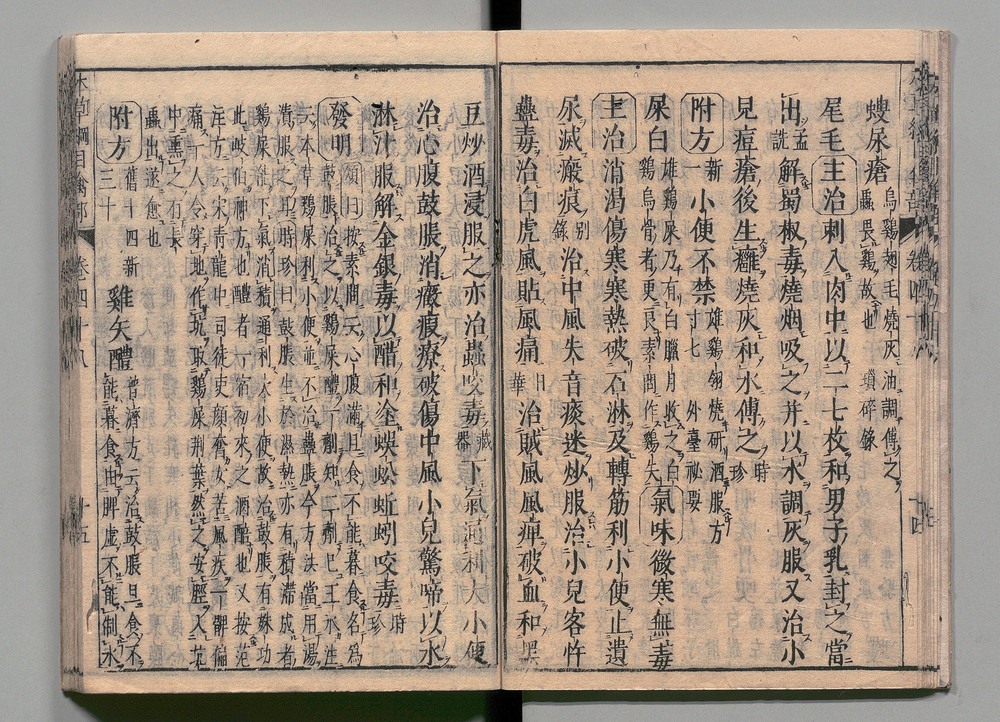 螋尿瘡 烏鷄翅毛燒灰油調傅之
蟲畏鷄故也 瑣碎錄
尾毛 主治 刺入肉中以二七枚和男子乳封之當
出 孟詵 解蜀椒毒燒烟吸之并以水調灰服又治小
兒痘瘡後生癰燒灰和水傅之 時珍
附方 新一 小便不禁 雄鷄翎燒研酒服方寸七 外臺祕要
屎白 雄鷄屎乃有白臘月收之白鷄烏骨者更良素問作鷄矢 氣味 微寒無毒
主治 消渴傷寒寒熱破石淋及轉筋利小便止遺
尿滅瘢痕 别錄 治中風失音痰迷炒服治小兒客忤
蠱毒治白虎風貼風痛 日華 治賊風風痺破血和黑
豆炒酒浸服之亦治蟲咬毒 藏器 下氣通利大小便
治心腹鼓脹消癥瘕療破傷中風小兒驚啼以水
淋汁服解金銀毒以醋和塗蜈蚣蚯蚓咬毒 時珍
發明 頌曰按素問云心腹滿旦食不能暮食名爲
鼓脹治之以鷄屎醴一劑知二劑已王氷注
云本草鷄屎利小便並不治蠱脹今方法當用湯
漬服之耳時珍曰鼓脹生於濕熱亦有積滯成者
鷄屎能下氣消積通利大小便故治鼓脹有殊功
此岐伯神方也醴者一宿初來之酒醅也又按范
汪方云宋青龍中司徒吏顔奮女苦風疾一髀偏
痛一人令穿地作坑取鷄屎荆葉然之安脛入坑
中熏之有長
蟲出遂愈也
附方 舊十四新三十 雞矢醴 普濟方云治鼓脹旦食不
能暮食由脾虛不能制水